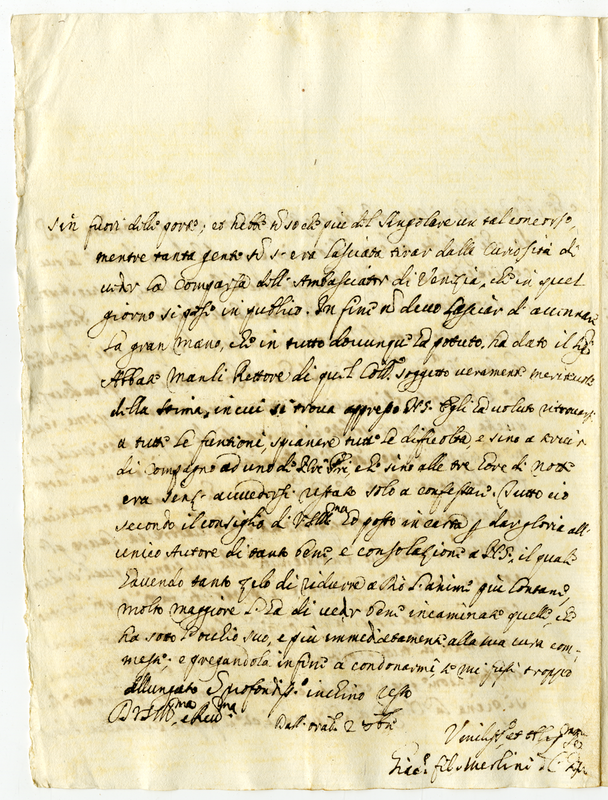 sin fuori delle porte; et hebbe nō so che più del singolare un tal concorso,
mentre tanta gente nō s'era lasciata tirar dalla curiosità di
veder la comparsa dell'Ambasciator di Venezia, che in quel
giorno si pose in publico. In fine nō devo lasciar d'accennare
la gran mano, che in tutto dovunque ha potuto, ha dato il
Abbate Manli Rettore di quel Coll.º soggetto veramente meritevole
della stima, in cui si trova appresso N.S. Egli ha voluto ritrovarsi
a tutte le funtioni, spianare tutte le dificoltà, e sino a
di Compagno ad uno de che sino alle tre hore di notte
era senza accorgersi restato solo a confessare. Tutto ciò
secondo il consiglio di V.S. Ill.ma ho posto in carta p dar gloria all'
unico Autore di tanto bene, e consolazione a N.S., il quale
havendo tanto zelo di ridurre a Dio l'anime più lontane,
molto maggiore l'ha di veder bene incaminate quelle, che
ha sotto l'occhio suo, e più immediatamente alla sua cura com-
messe; e pregandola infine a condonarmi se mi fussi troppo
allungato profondiss.e inchino resto
D V.S. Ill.ma e Rev.ma Dall' 2
Umiliss.º et
Merlini